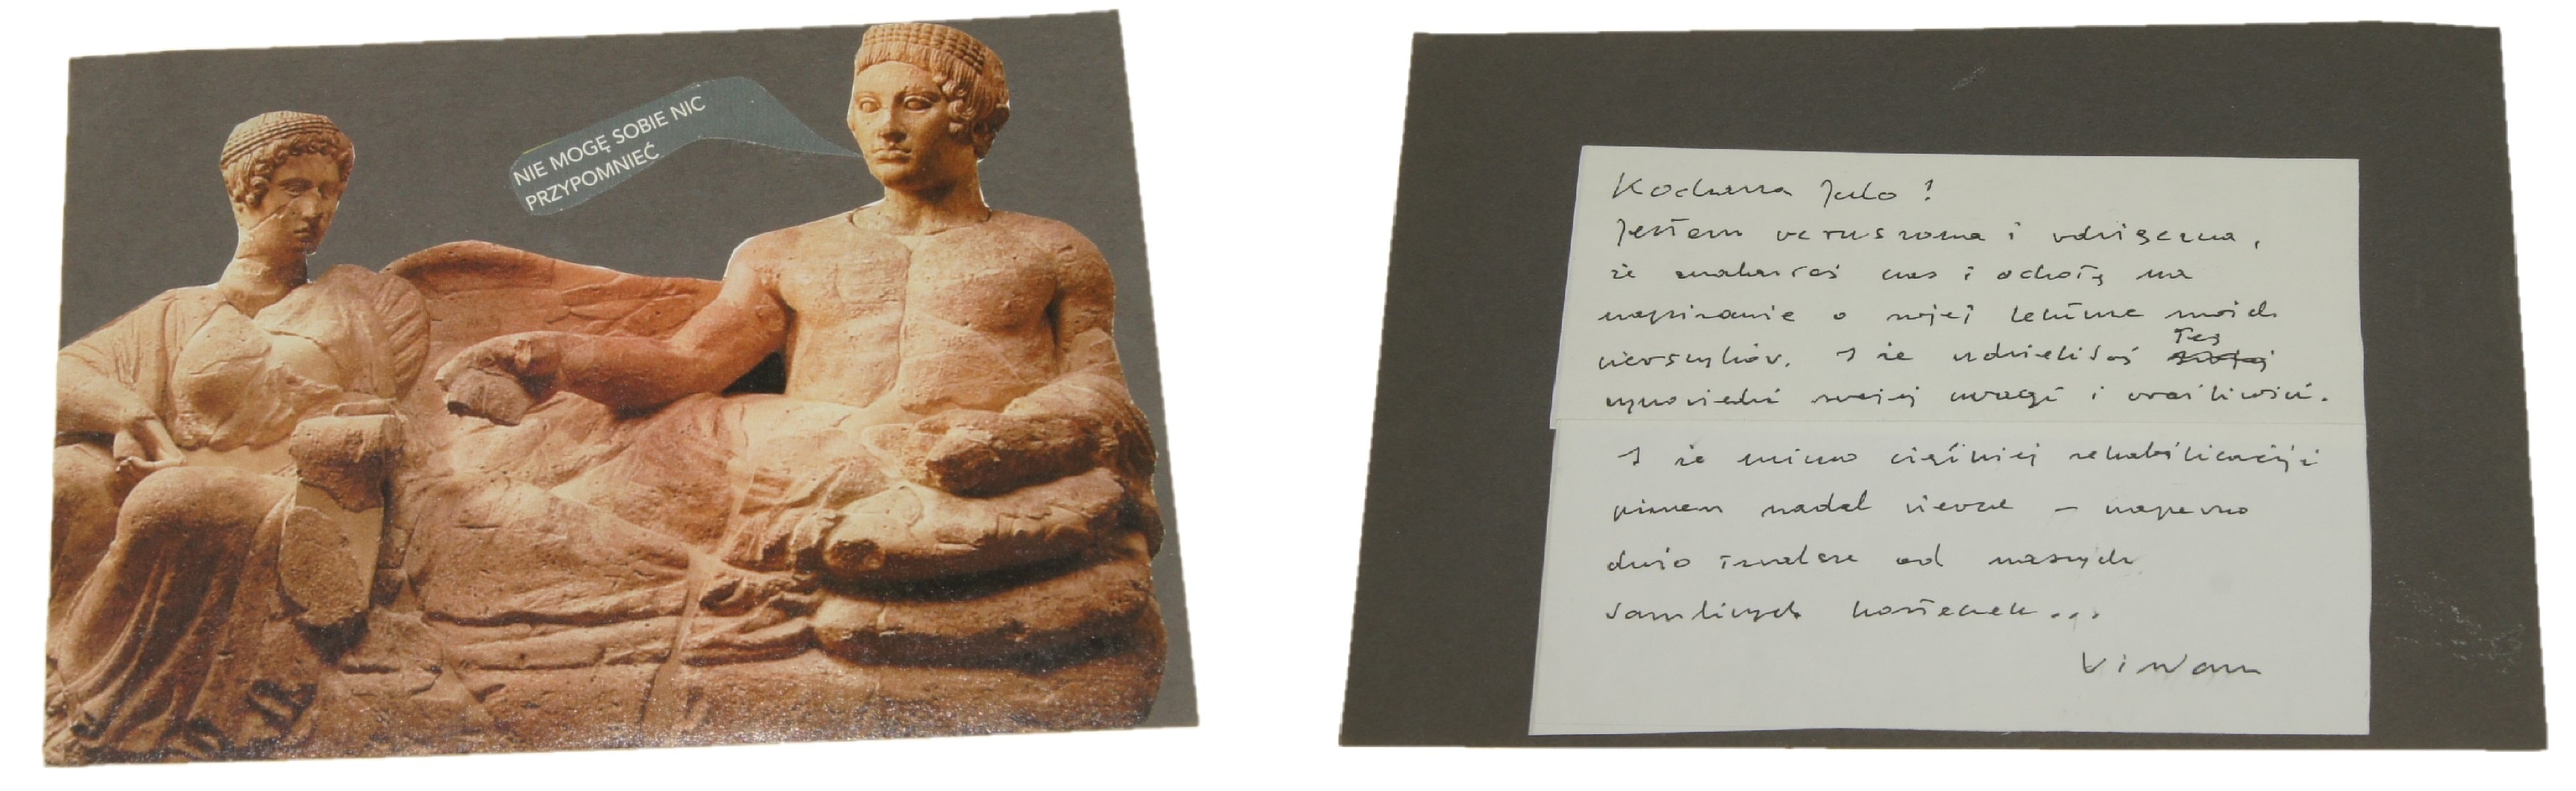 NIE MOGĘ SOBIE NIC
PRZYPOMNIEĆ
Kochana Julo!
Jestem wzruszona i wdzięczna,
że znalazłaś czas i ochotę na
napisanie o swojej lekturze moich
wierszyków. I że udzieliłaś Tej
wypowiedzi swojej uwagi i wrażliwości.
I że mimo ciężkiej rehabilitacji
piszesz nadal wiersze – napewno
od naszych
kosteczek...